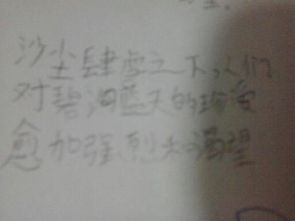 沙尘肆虐之下,人们
对碧海蓝天的
愈加强烈和渴望